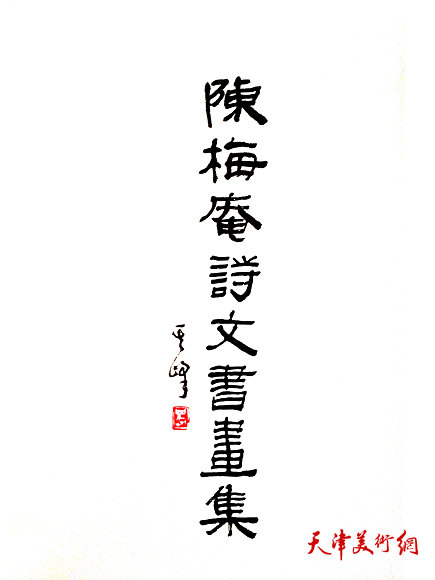 陳梅庵詩文書畫集
其峰
天津美術網